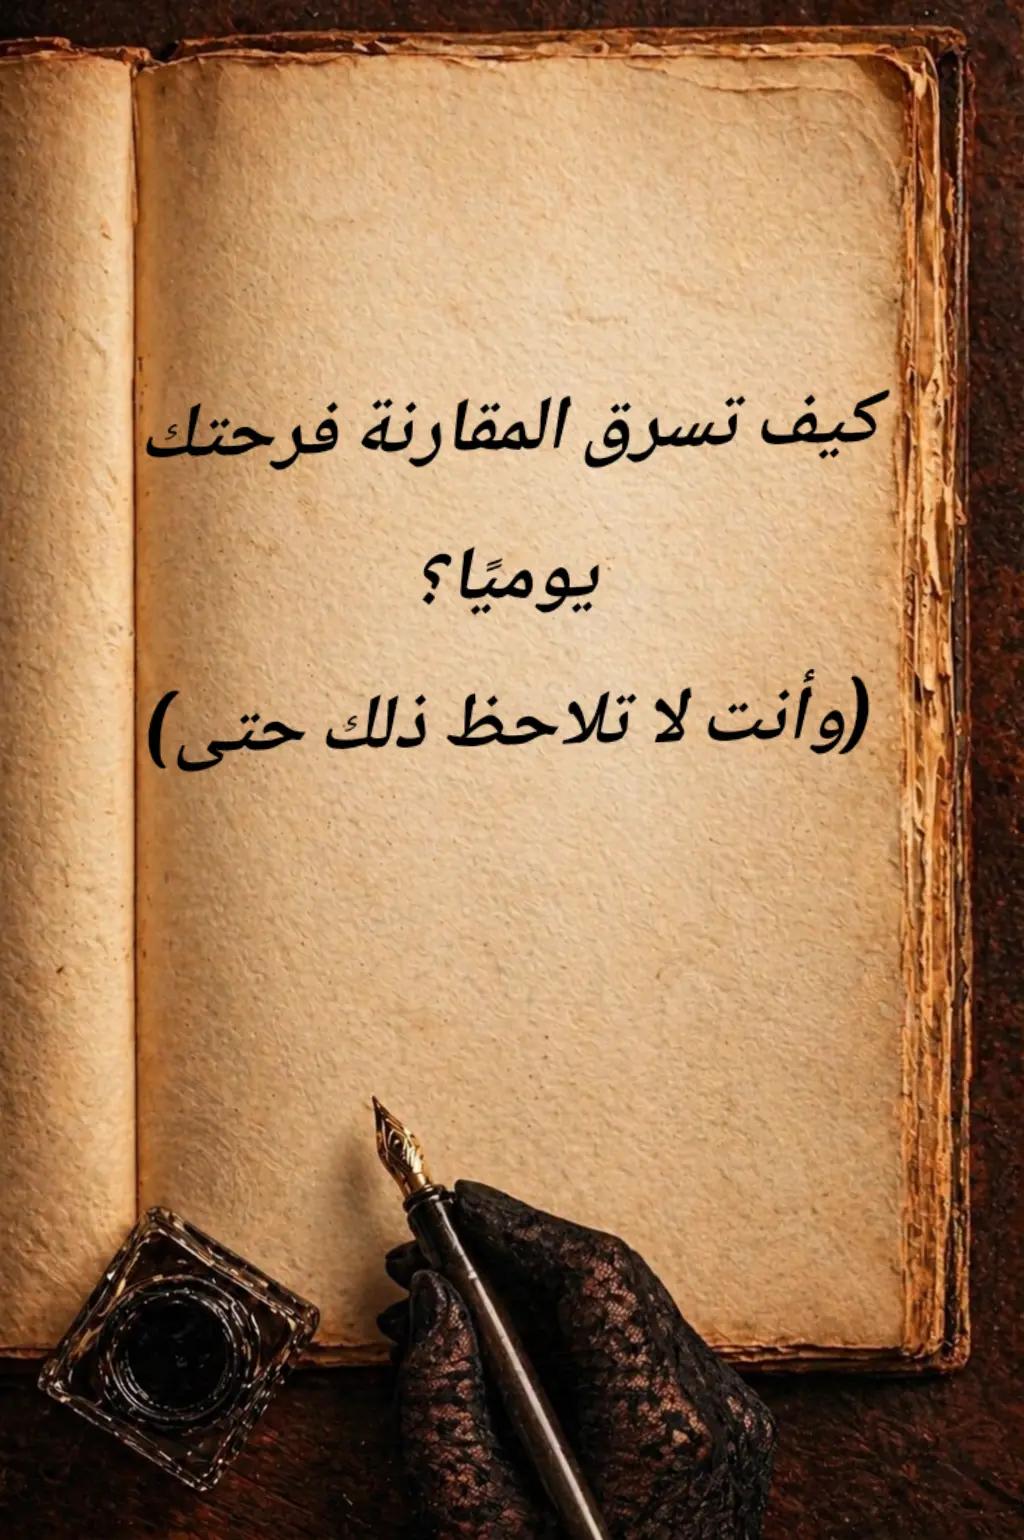 كيف تسرق المقارنة فرحتك
يوميًا؟
(وأنت لا تلاحظ ذلك حتى)